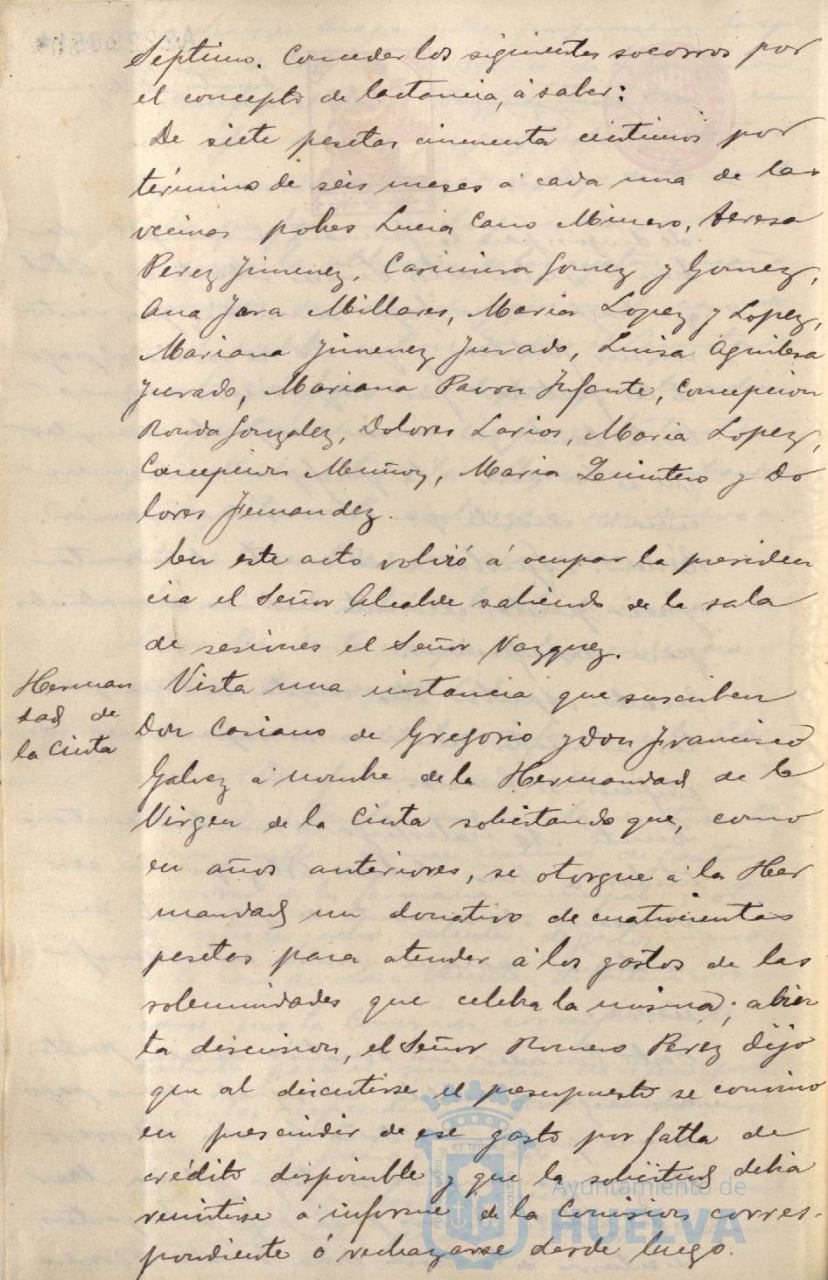 Séptimo. Conceder los siguientes socorros por
el concepto de lactancia, á saber:
De siete pesetas cincuenta céntimos por
término de séis meses á cada una de las
vecinas pobres Lucia Cano Minero, Teresa
Perez Jimenez, Casimira Gomez y Gomez,
Ana Jara Millares, Maria Lopez y Lopez,
Mariana Jimenez Jurado, Luisa Aguilera
Jurado, Mariana Pavon Infante, Concepcion
Ronda Gonzalez, Dolores Larios, Maria Lopez,
Concepcion Muñoz, Maria Quintero y Do
lores Fernandez.
En este acto volvió á ocupar la presiden
cia el Señor Alcalde saliendo de la sala
de sesiones el Señor Vazquez.
Herman
dad de
la Cinta
Vista una instancia que suscriben
Don Casiano de Gregorio y Don Francisco
Galvez á nombre de la Hermandad de la
Virgen de la Cinta solicitando que, como
en años anteriores, se otorgue á la Her
mandad un donativo de cuatrocientas
pesetas para atender á los gastos de las
solemnidades que celebra la misma; abier
ta discusion, el Señor Romero Perez dijo
que al discutirse el presupuesto se convino
en prescindir de ese gasto por falta de
crédito disponible y que la solicitud debia
remitirse á informe de la Comision corres-
pondiente ó rechazarse desde luego.
Ayuntamiento de
HUELVA